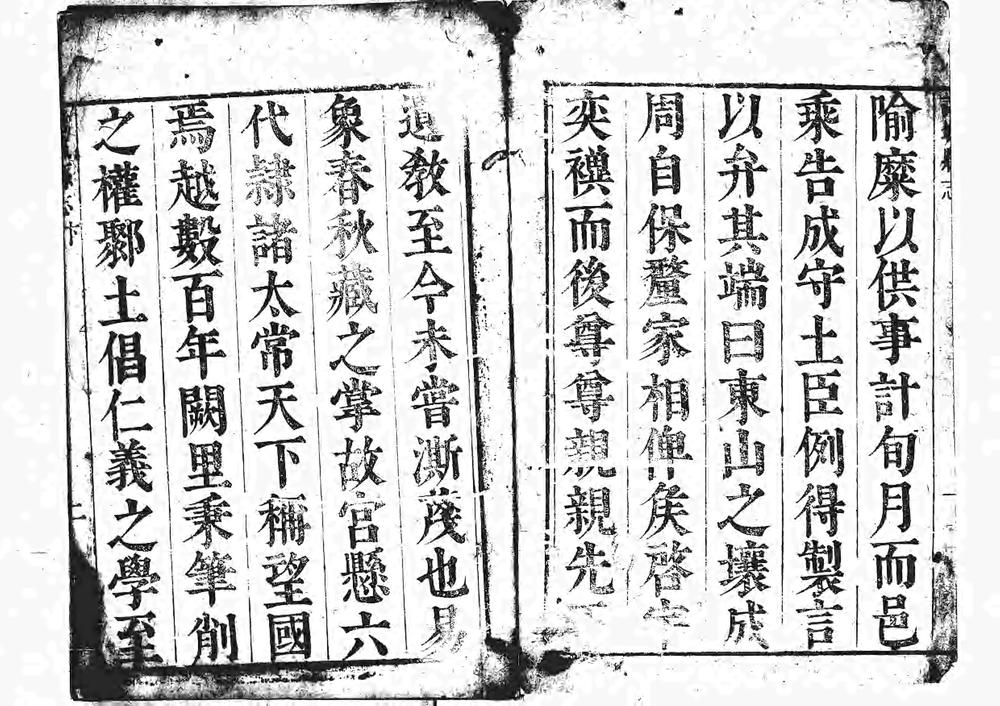 隃糜以供事計旬月而邑
乘告成守土臣例得製言
以弁其端曰東山之壤成
周自保釐家相俾矦啓宇
奕禩而後尊尊親親先
遺敎至今未嘗澌蔑也易
象春秋藏之掌故官懸六
代隸諸太常天下稱望國
焉越數百年闕里秉筆削
之權鄹土倡仁義之學至